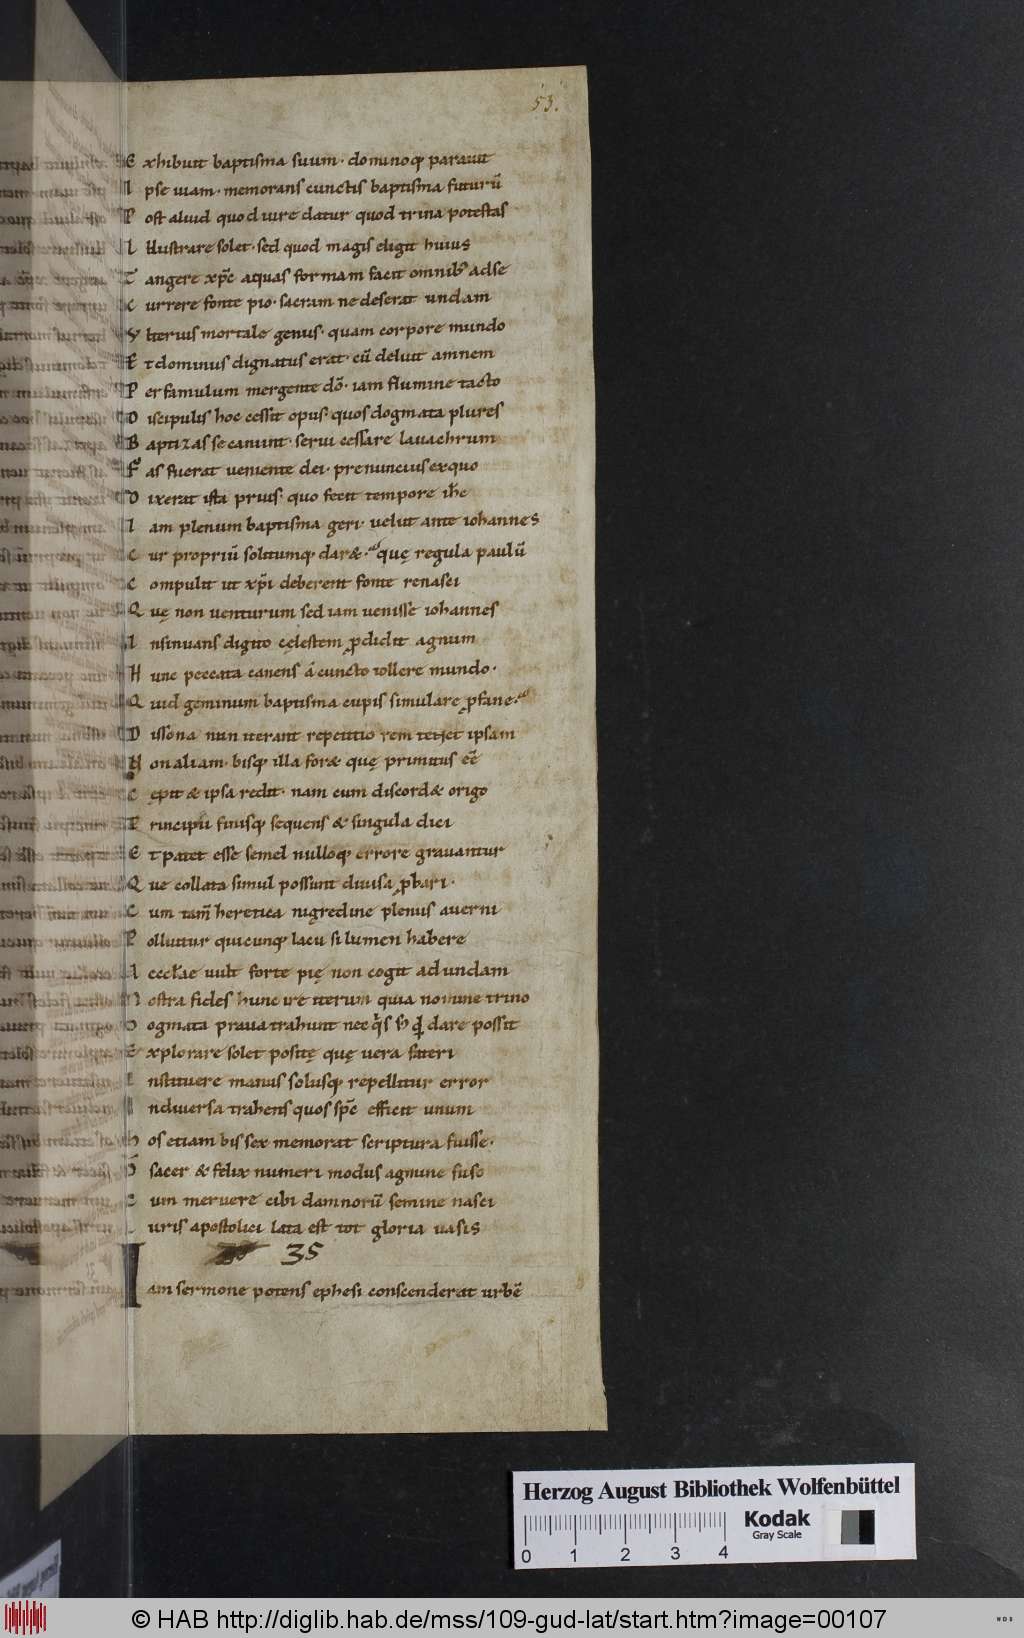 53.
E xhibuit baptisma suum· dominoq; parauit
I pse uiam· memorans cunctis baptisma futurū
P ost aliud quod iure datur quod trina potestas
I llustrare solet· sed quod magis eligit huius
T angere xp̄c aquas formam facit omnib; adse
C urrere fonte pio· sacram ne deserat undam
V lterius mortale genus· quam corpore mundo
E t dominus dignatus erat· cū deluit amnem
P er famulum mergente dō· iam flumine tacto
D iscipulis hoc cessit opus· quos dogmata plures
B aptizasse canunt· serui cessare lauachrum
F as fuerat ueniente dei· prenuncius exquo
D ixerat ista prius· quo fecit tempore ihc̄
I am plenum baptisma geri· uelut ante iohannes
C ur propriū solitumq; dar&· quę regula paulū
C ompulit ut xp̄i deberent fonte renasci
Q uę non uenturum sed iam uenisse iohannes
I nsinuans digito cęlestem ꝓdidit agnum
H unc peccata canens á cuncto tollere mundo·
Q uid geminum baptisma cupis simulare ꝓfane·
D issona non iterant repetitio rem tenet ipsam
N on aliam· bisq; illa for& quę primitus eē
C ępit & ipsa redit· nam cum discord& origo
P rincipii finisq; sequens & singula dici
E t patet esse semel nulloq; errore grauantur
Q ue collata simul possunt diuisa ꝓbari·
C um tam̄ heretica nigredine plenus auerni
P olluitur quicunq; lacu si lumen habere
A eccl̄ae uult forte pię non cogit ad undam
N ostra fides hunc ire iterum quia nomine trino
D ogmata praua trahunt nec
dare possit
E xplorare solet positę quę uera fateri
I nstituere manus solusq; repellitur error
I ndiuersa trahens quos sp̄c efficit unum
H os etiam bis sex memorat scriptura fuisse·
O sacer & felix numeri modus agmine fuso
C um meruere cibi damnorū semine nasci
P uris apostolici lata est tot gloria uasis
35
I am sermone potens ephesi conscenderat urbē
Herzog August Bibliothek Wolfenbüttel
Kodak
Gray Scale
0 1 2 3 4
© HAB http://diglib.hab.de/mss/109-gud-lat/start.htm?image=00107